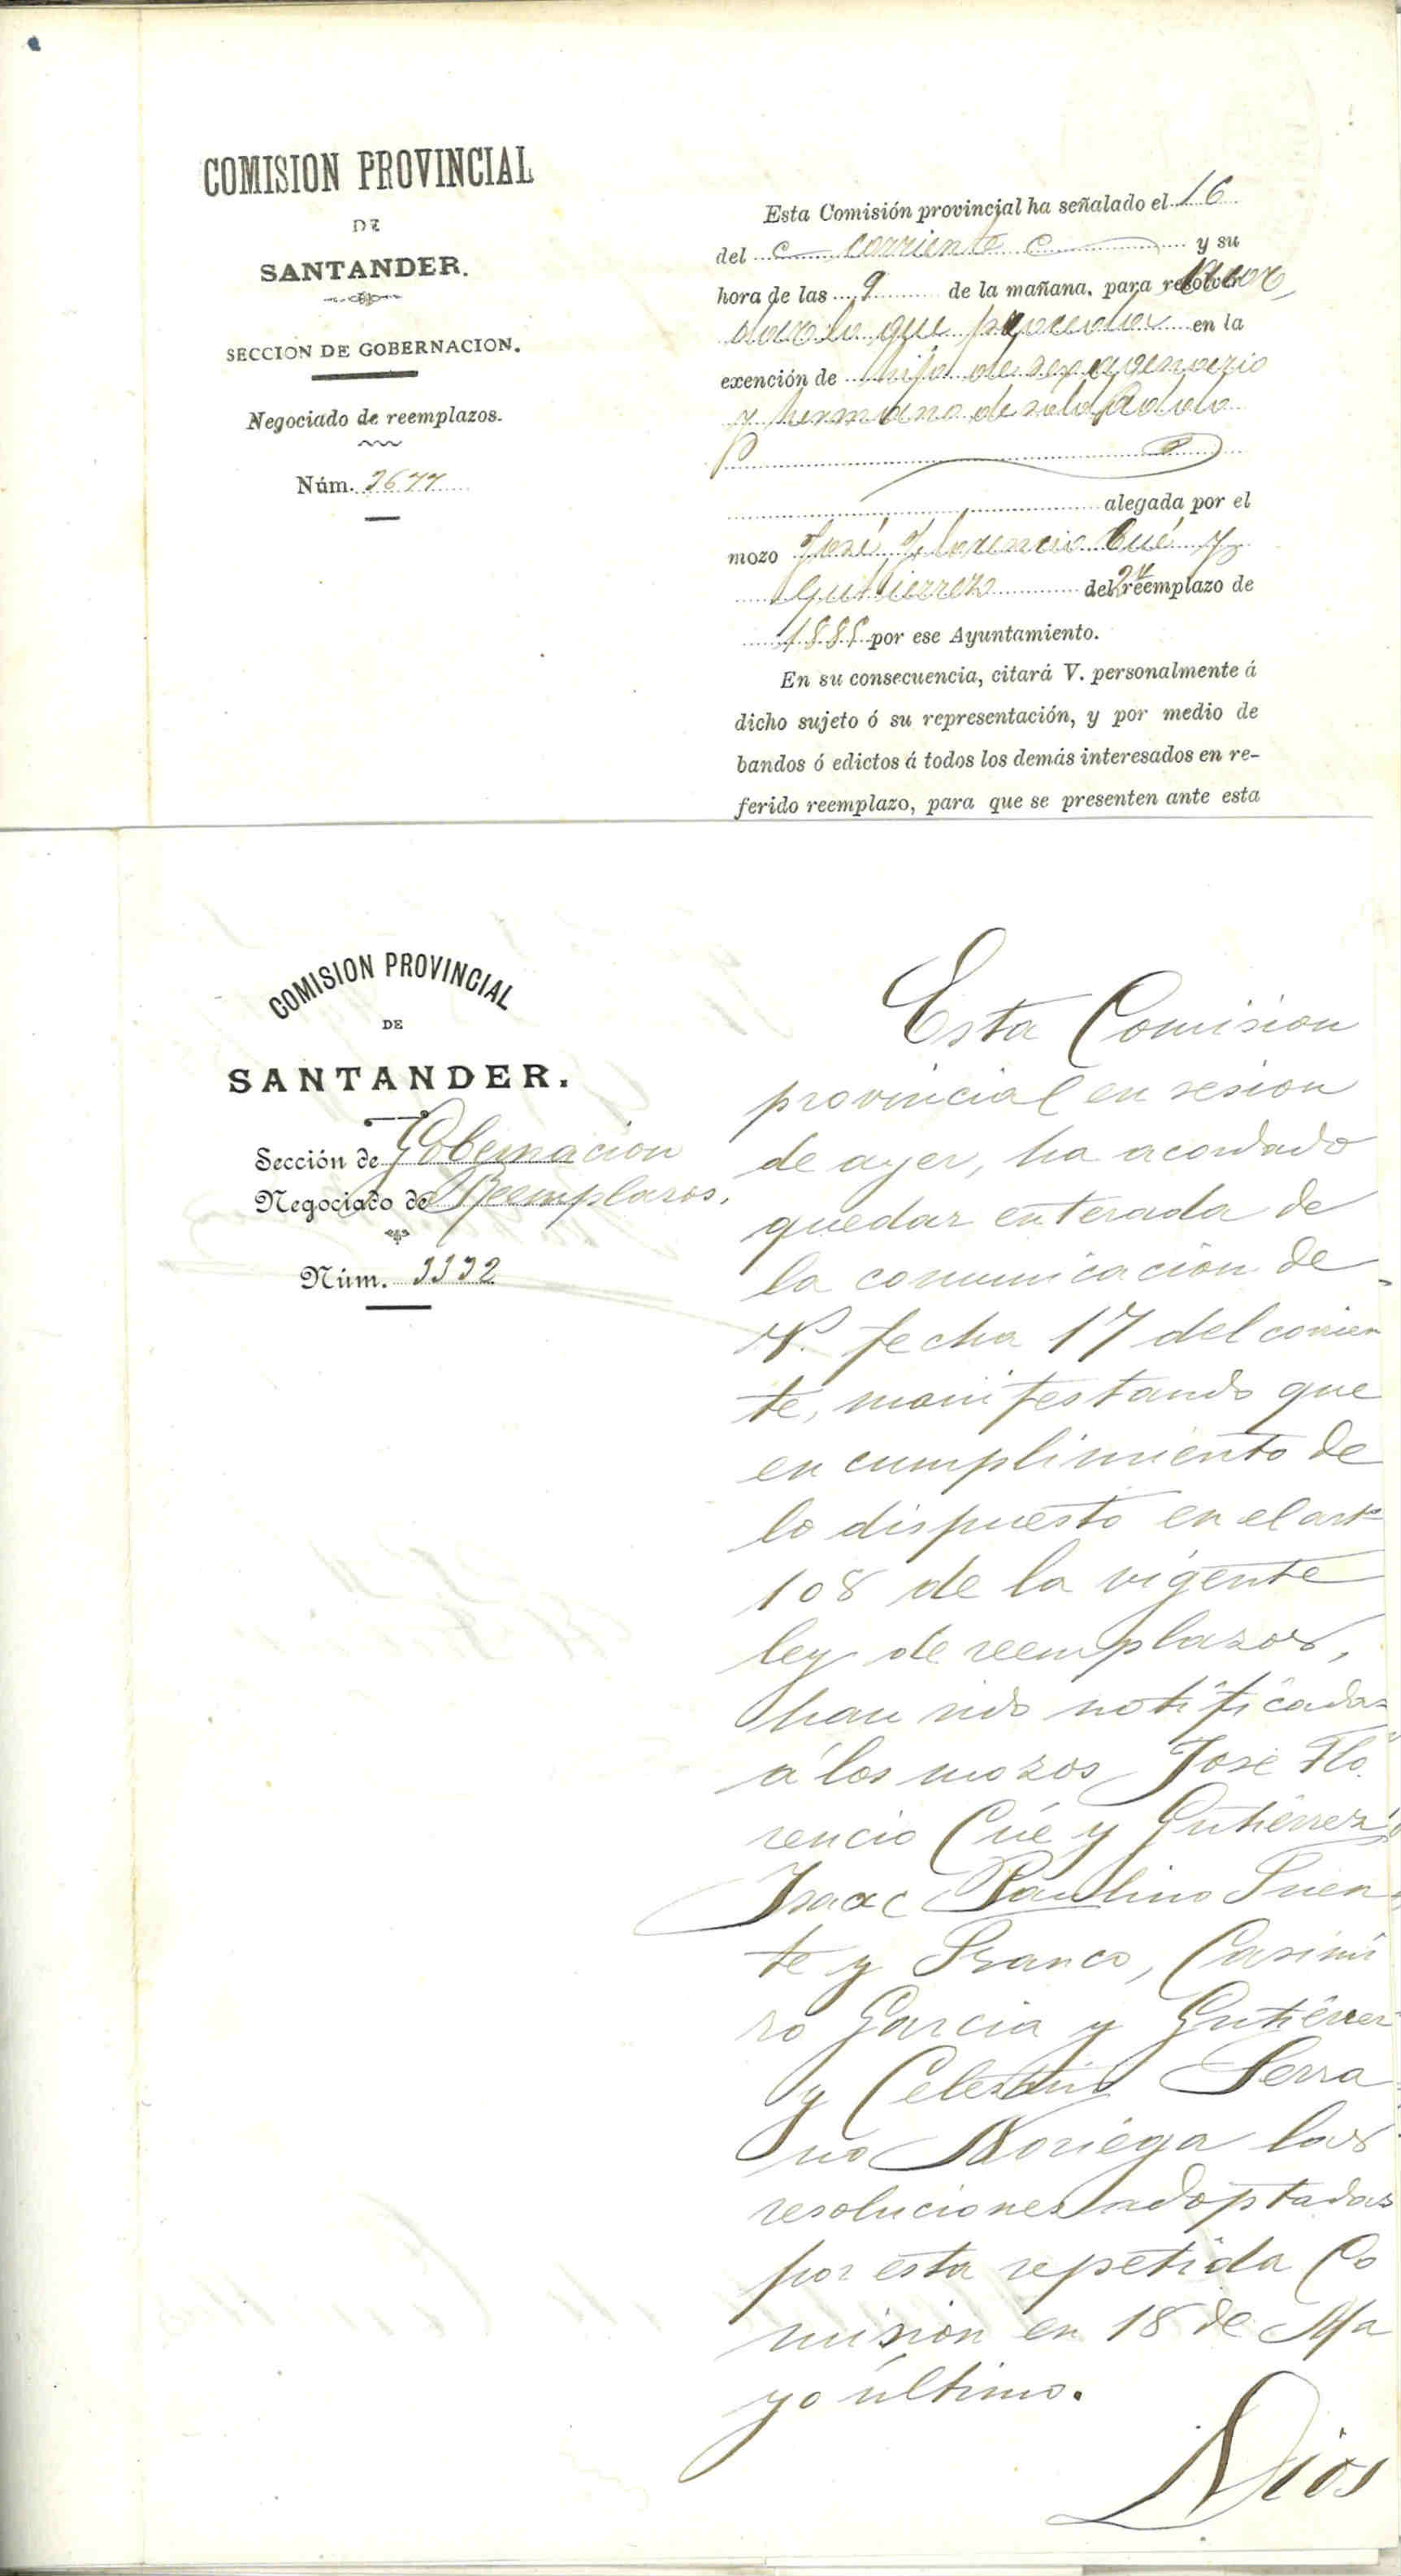 COMISION PROVINCIAL
DE
SANTANDER.
SECCION DE GOBERNACION.
Negociado de reemplazos.
Núm. 2677
Esta Comisión provincial ha señalado el 16
del corriente y su
hora de las 9 de la mañana, para resolver acor
dar lo que proceda en la
exención de hijo de sexagenario
y hermano de soldado
alegada por el
mozo José Florencio Cué y
Gutierrez del 2º reemplazo de
1885 por ese Ayuntamiento.
En su consecuencia, citará V. personalmente á
dicho sujeto ó su representación, y por medio de
bandos ó edictos á todos los demás interesados en re-
ferido reemplazo, para que se presenten ante esta
COMISION PROVINCIAL
DE
SANTANDER.
Sección de Gobernacion
Negociado de Reemplazos.
Núm. 3332
Esta Comision
provincial en sesion
de ayer, ha acordado
quedar enterada de
la comunicacion de
V. fecha 17 del corrien
te, manifestando que
en cumplimiento de
lo dispuesto en el artº
108 de la vigente
ley de reemplazos,
han sido notificadas
á los mozos José Flo
rencio Cué y Gutiérrez,
Isaac Paulino Puen
te y Franco, Casimi
ro Garcia y Gutiérrez
y Celestino Serra
no Noriega las
resoluciones adoptadas
por esta repetida Co
mision en 18 de Ma
yo último.
Dios